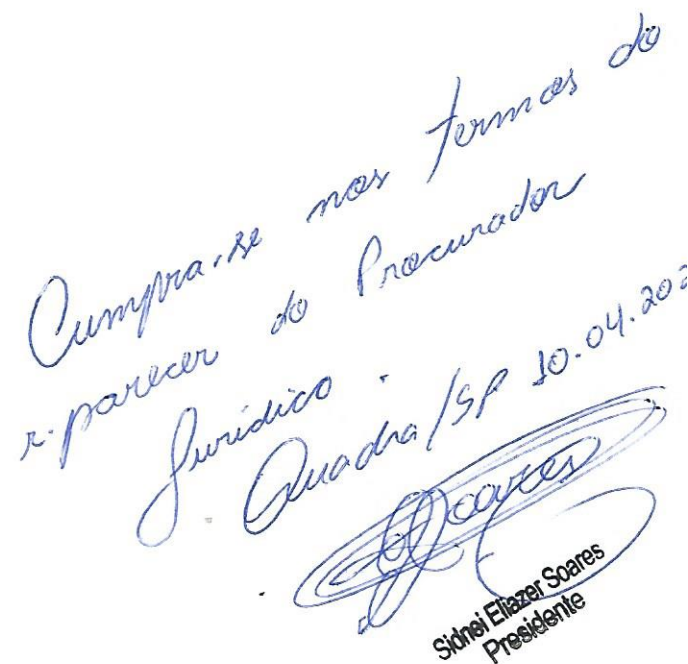 Cumpra-se nos termos do
r. parecer do Procurador
Jurídico.
Quadra/SP 10.04.202
Soares
Sidnei Eliazer Soares
Presidente